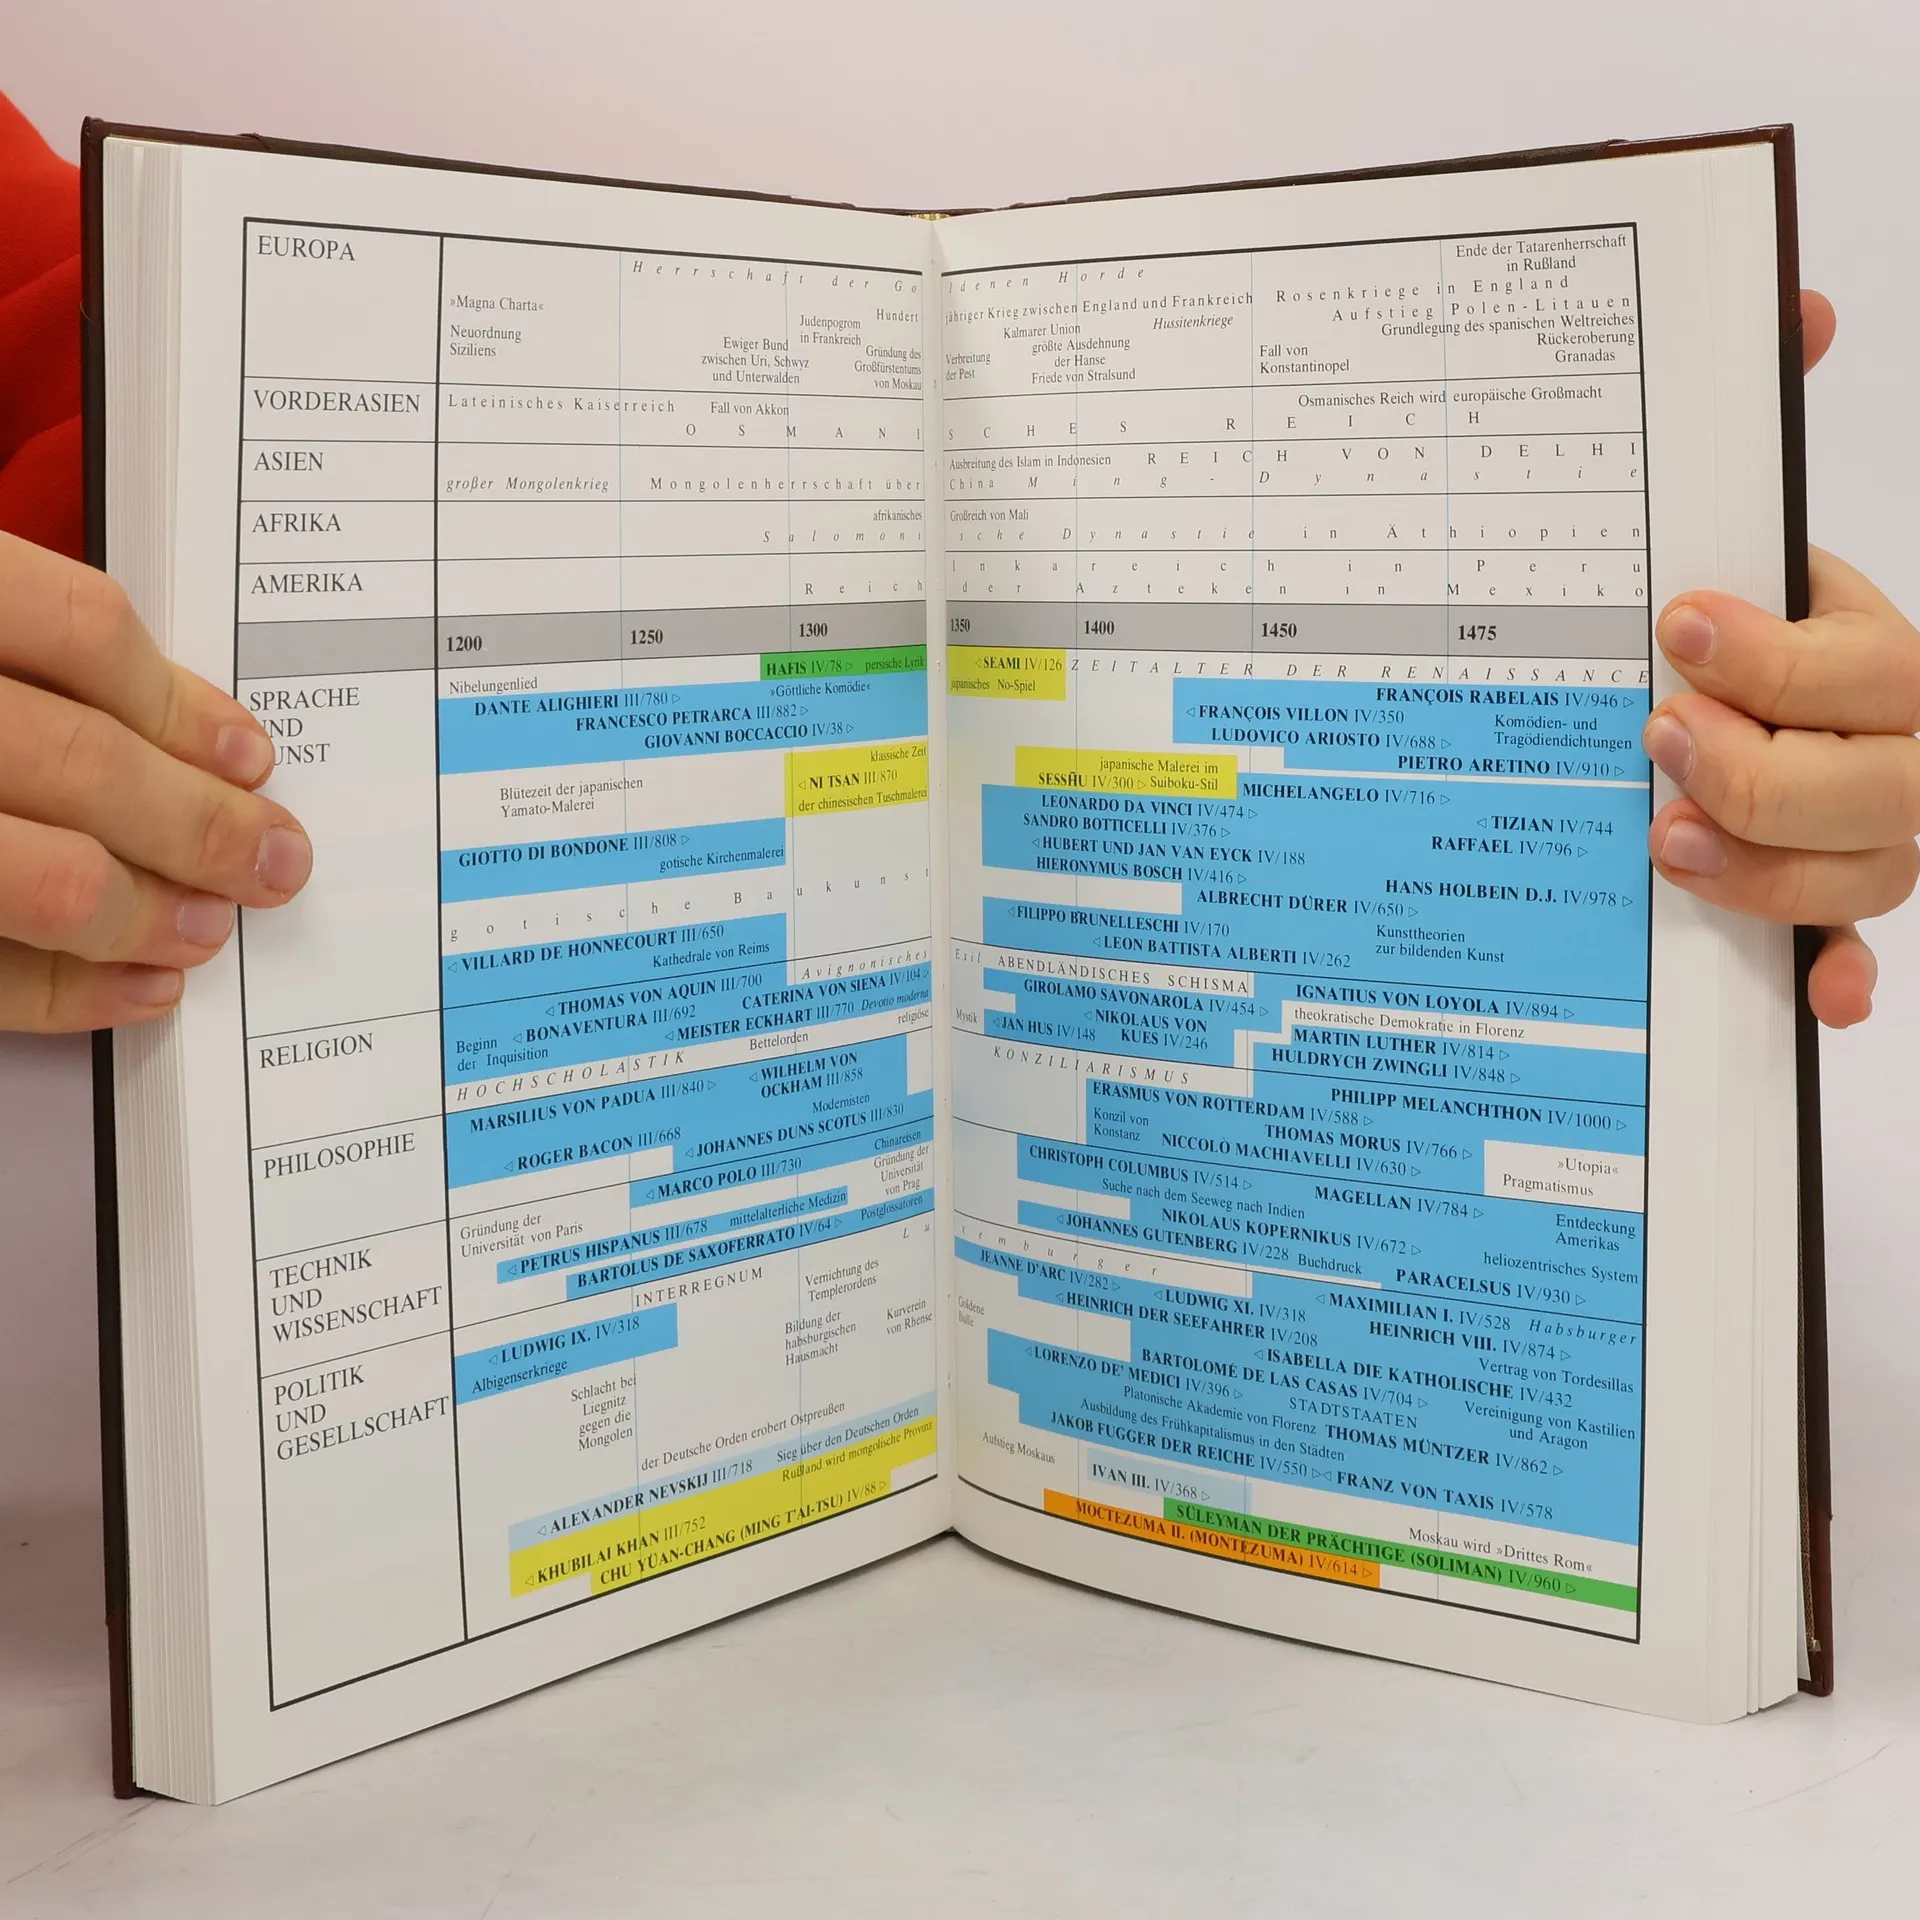 EUROPA
Herrschaft der Goldenen Horde
»Magna Charta«
Neuordnung
Siziliens
Ewiger Bund
zwischen Uri, Schwyz
und Unterwalden
Judenpogrom
in Frankreich
Hundert-
Gründung des
Großfürstentums
von Moskau
jähriger Krieg zwischen England und Frankreich
Verbreitung
der Pest
Kalmarer Union
größte Ausdehnung
der Hanse
Friede von Stralsund
Hussitenkriege
Ende der Tatarenherrschaft
in Rußland
Rosenkriege in England
Aufstieg Polen-Litauen
Grundlegung des spanischen Weltreiches
Fall von
Konstantinopel
Rückeroberung
Granadas
VORDERASIEN
Lateinisches Kaiserreich
Fall von Akkon
Osmanisches Reich wird europäische Großmacht
OSMANISCHES REICH
ASIEN
Ausbreitung des Islam in Indonesien
REICH VON DELHI
großer Mongolenkrieg
Mongolenherrschaft über China
Ming-Dynastie
AFRIKA
afrikanisches Großreich von Mali
Salomonische Dynastie in Äthiopien
AMERIKA
Inkareich in Peru
Reich der Azteken in Mexiko
1200 1250 1300 1350 1400 1450 1475
SPRACHE
UND
KUNST
Nibelungenlied
HAFIS IV/78 ▷ persische Lyrik
DANTE ALIGHIERI III/780 ▷
»Göttliche Komödie«
FRANCESCO PETRARCA III/882 ▷
GIOVANNI BOCCACCIO IV/38 ▷
klassische Zeit
◁ NI TSAN III/870
der chinesischen Tuschmalerei
Blütezeit der japanischen
Yamato-Malerei
GIOTTO DI BONDONE III/808 ▷
gotische Kirchenmalerei
gotische Baukunst
◁ VILLARD DE HONNECOURT III/650
Kathedrale von Reims
◁ SEAMI IV/126
japanisches No-Spiel
ZEITALTER DER RENAISSANCE
FRANÇOIS RABELAIS IV/946 ▷
◁ FRANÇOIS VILLON IV/350
Komödien- und
Tragödiendichtungen
LUDOVICO ARIOSTO IV/688 ▷
PIETRO ARETINO IV/910 ▷
japanische Malerei im
SESSHŪ IV/300 ▷ Suiboku-Stil
MICHELANGELO IV/716 ▷
LEONARDO DA VINCI IV/474 ▷
◁ TIZIAN IV/744
SANDRO BOTTICELLI IV/376 ▷
RAFFAEL IV/796 ▷
◁ HUBERT UND JAN VAN EYCK IV/188
HIERONYMUS BOSCH IV/416 ▷
HANS HOLBEIN D.J. IV/978 ▷
ALBRECHT DÜRER IV/650 ▷
◁ FILIPPO BRUNELLESCHI IV/170
Kunsttheorien
zur bildenden Kunst
◁ LEON BATTISTA ALBERTI IV/262
RELIGION
Avignonisches Exil
◁ THOMAS VON AQUIN III/700
CATERINA VON SIENA IV/104 ▷
◁ BONAVENTURA III/692
◁ MEISTER ECKHART III/770 Devotio moderna
Beginn
der Inquisition
Bettelorden
religiöse Mystik
HOCHSCHOLASTIK
ABENDLÄNDISCHES SCHISMA
GIROLAMO SAVONAROLA IV/454 ▷
IGNATIUS VON LOYOLA IV/894 ▷
theokratische Demokratie in Florenz
◁ JAN HUS IV/148
◁ NIKOLAUS VON
KUES IV/246
MARTIN LUTHER IV/814 ▷
HULDRYCH ZWINGLI IV/848 ▷
KONZILIARISMUS
PHILIPP MELANCHTHON IV/1000 ▷
PHILOSOPHIE
MARSILIUS VON PADUA III/840 ▷
◁ WILHELM VON
OCKHAM III/858
Modernisten
◁ ROGER BACON III/668
◁ JOHANNES DUNS SCOTUS III/830
ERASMUS VON ROTTERDAM IV/588 ▷
Konzil von
Konstanz
THOMAS MORUS IV/766 ▷
»Utopia«
NICCOLÒ MACHIAVELLI IV/630 ▷
Pragmatismus
TECHNIK
UND
WISSENSCHAFT
◁ MARCO POLO III/730
Chinareisen
Gründung der
Universität
von Prag
Gründung der
Universität von Paris
◁ PETRUS HISPANUS III/678 mittelalterliche Medizin
BARTOLUS DE SAXOFERRATO IV/64 ▷ Postglossatoren
CHRISTOPH COLUMBUS IV/514 ▷
Suche nach dem Seeweg nach Indien
MAGELLAN IV/784 ▷
Entdeckung
Amerikas
NIKOLAUS KOPERNIKUS IV/672 ▷
heliozentrisches System
◁ JOHANNES GUTENBERG IV/228 Buchdruck
PARACELSUS IV/930 ▷
POLITIK
UND
GESELLSCHAFT
INTERREGNUM
Luxemburger
◁ LUDWIG IX. IV/318
Albigenserkriege
Vernichtung des
Templerordens
Bildung der
habsburgischen
Hausmacht
Kurverein
von Rhense
Goldene
Bulle
Schlacht bei
Liegnitz
gegen die
Mongolen
der Deutsche Orden erobert Ostpreußen
◁ ALEXANDER NEVSKIJ III/718 Sieg über den Deutschen Orden
Rußland wird mongolische Provinz
◁ KHUBILAI KHAN III/752
CHU YÜAN-CHANG (MING T'AI-TSU) IV/88 ▷
JEANNE D'ARC IV/282 ▷
◁ LUDWIG XI. IV/318
◁ MAXIMILIAN I. IV/528 Habsburger
◁ HEINRICH DER SEEFAHRER IV/208
HEINRICH VIII. IV/874 ▷
◁ ISABELLA DIE KATHOLISCHE IV/432
Vertrag von Tordesillas
◁ LORENZO DE' MEDICI IV/396 ▷
BARTOLOMÉ DE LAS CASAS IV/704 ▷
Vereinigung von Kastilien
und Aragon
Platonische Akademie von Florenz
STADTSTAATEN
Ausbildung des Frühkapitalismus in den Städten
THOMAS MÜNTZER IV/862 ▷
JAKOB FUGGER DER REICHE IV/550 ▷
◁ FRANZ VON TAXIS IV/578
Aufstieg Moskaus
IVAN III. IV/368 ▷
Moskau wird »Drittes Rom«
SÜLEYMAN DER PRÄCHTIGE (SOLIMAN) IV/960 ▷
MOCTEZUMA II. (MONTEZUMA) IV/614 ▷